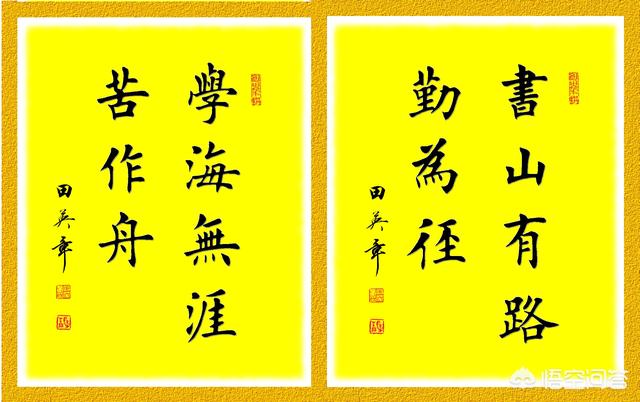 書山有路
勤為径
田英章
學海無涯
苦作舟
田英章
悟空问答